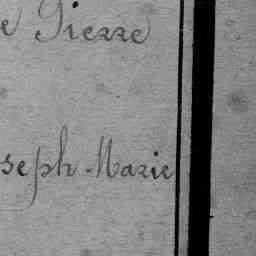 e Pierre
seph-Marie